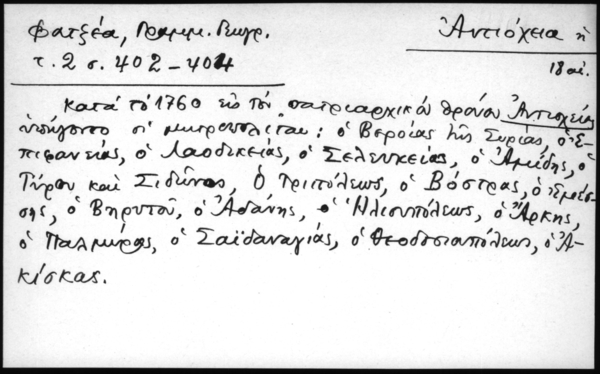 Φατζέα, Γραμμ. Γεωγρ.
τ. 2 σ. 402-404
Ἀντιόχεια ἡ
18 αἰ.
Κατά τό 1760 εἰς τόν πατριαρχικόν θρόνον Ἀντιοχείας
ὑπήγοντο οἱ μητροπολῖται: ὁ Βεροίας τῆς Συρίας, ὁ Ἐ-
πιφανείας, ὁ Λαοδικείας, ὁ Σελευκείας, ὁ Ἀμίδης, ὁ
Τύρου καί Σιδῶνος, ὁ Τριπόλεως, ὁ Βόστρας, ὁ Ἐμέσ-
σης, ὁ Βηρυτοῦ, ὁ Ἀδάνης, ὁ Ἡλιουπόλεως, ὁ Ἄρκης,
ὁ Παλμύρας, ὁ Σαϊδαναγιάς, ὁ Θεοδοσιουπόλεως, ὁ Ἀ-
κίσκας.